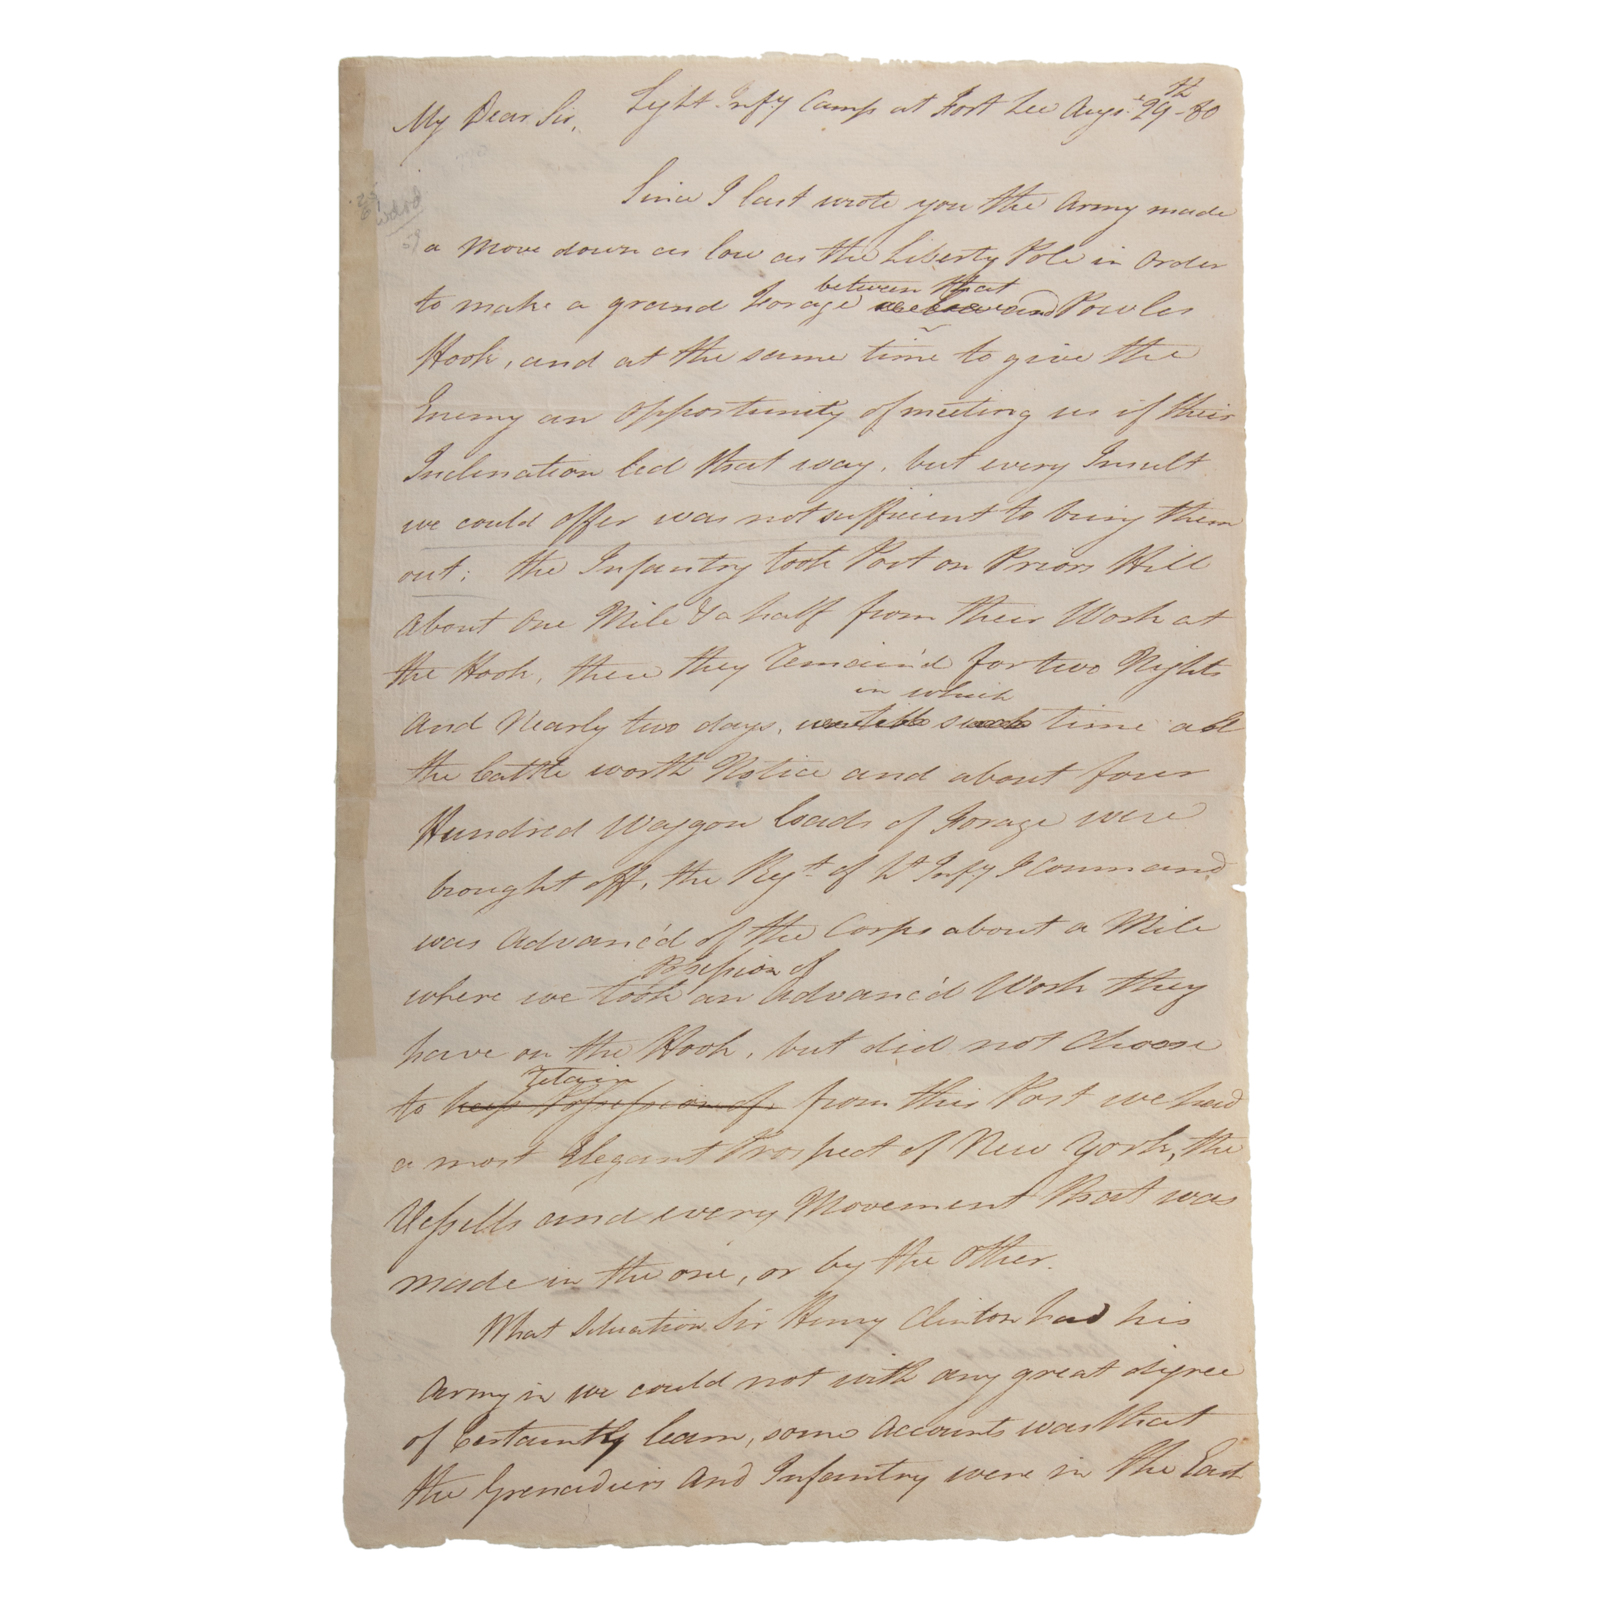 Light Infy Camp at Fort Lee Augst 29th - 80
My Dear Sir,
Since I last wrote you the Army made
a Move down as low as the Liberty Pole in Order
between that
to make a grand Forage and Powles
Hook, and at the same time to give the
Enemy an Opportunity of meeting us if their
Inclination led that way, but every Insult
we could offer was not sufficient to bring them
out; the Infantry took Post on Priors Hill
About One Mile & a half from their Work at
the Hook, there they Remain'd for two Nights
in which
And Nearly two days, such time all
the Cattle worth Notice and about four
Hundred Waggon loads of Forage were
brought off, the Regt of Lt Infy I Command
was Advanc'd of the Corps about a Mile
Possession of
where we took an Advanc'd Work they
have on the Hook, but did not Choose
retain
to keep Possession of from this Post we had
a most Elegant Prospect of New York, the
Vessells and every Movement that was
made in the one, or by the Other.
What Situation Sir Henry Clinton had his
Army in we could not with any great digree
of Certainty learn, some Accounts was that
the Grenadiers And Infantry were in the East